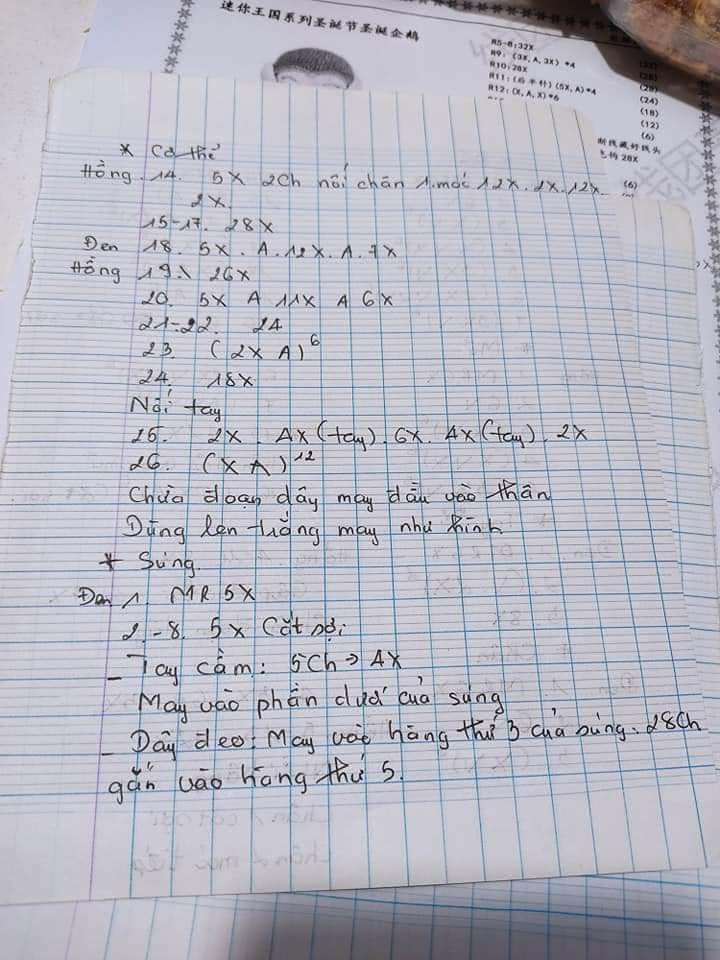 迷你王国系列圣诞节圣诞企鹅
R5-8:32X
R9:(3X,A,3X)*4
R10:28X
R11:(后半针)(5X,A)*4
R12:(X,A,X)*6
(28)
(24)
(18)
(12)
(6)
制线藏好线头
28X
(6)
* Cơ thể
Hồng. 14. 5X 2Ch nối chân 1.móc 12X.2X.12X.
2X.
15-17. 28X
Đen 18. 5X. A. 12X. A. 7X
Hồng 19. 26X
20. 5X A 11X A 6X
21-22. 24
23. (2X A)⁶
24. 18X
Nối tay
25. 2X. 4X(tay). 6X. 4X(tay). 2X
26. (X A)¹²
Chừa đoạn dây may đầu vào thân
Dùng len trắng may như hình
* Súng.
Đen 1. MR 5X
2.-8. 5X Cắt sợi
- Tay cầm: 5Ch → 4X
May vào phần dưới của súng
- Dây đeo: May vào hàng thứ 3 của súng. 28Ch
gắn vào hàng thứ 5.